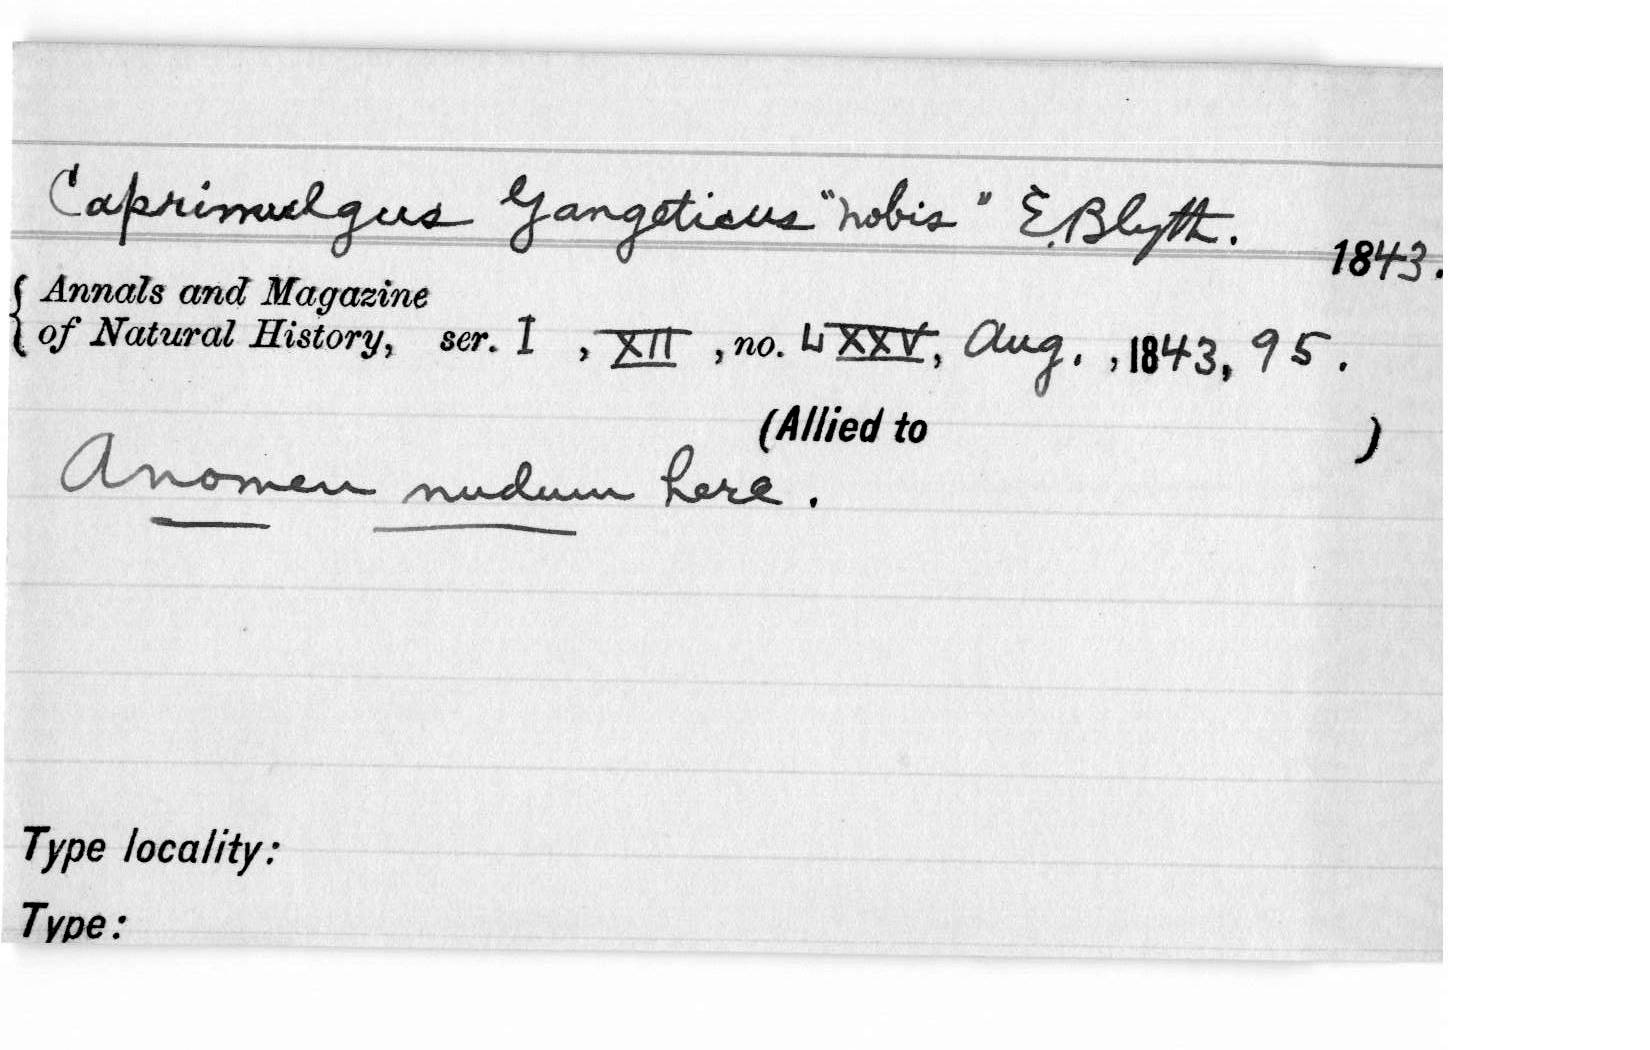 Caprimulgus Gangeticus "nobis" E. Blyth. 1843.
{ Annals and Magazine
of Natural History, ser. I , XII , no. LXXV, Aug. , 1843, 95.
(Allied to )
A nomen nudum here.
Type locality:
Type: